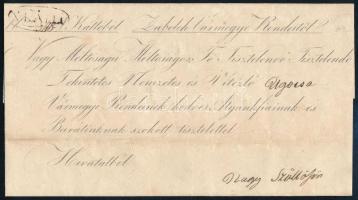 N.KÁLLÓ
Kállóból Zabolch Vármegye Rendeitől
Nagy Méltóságú Méltóságos Fő Tisztelendő Tisztelendő
Tekintetes Nemzetes és Vitézlő Ugocsa
Vármegye Rendeinek kedves Atyánkfiainak és
Barátinknak szokott tisztelettel
Hivatalból
Nagy Szőllősön